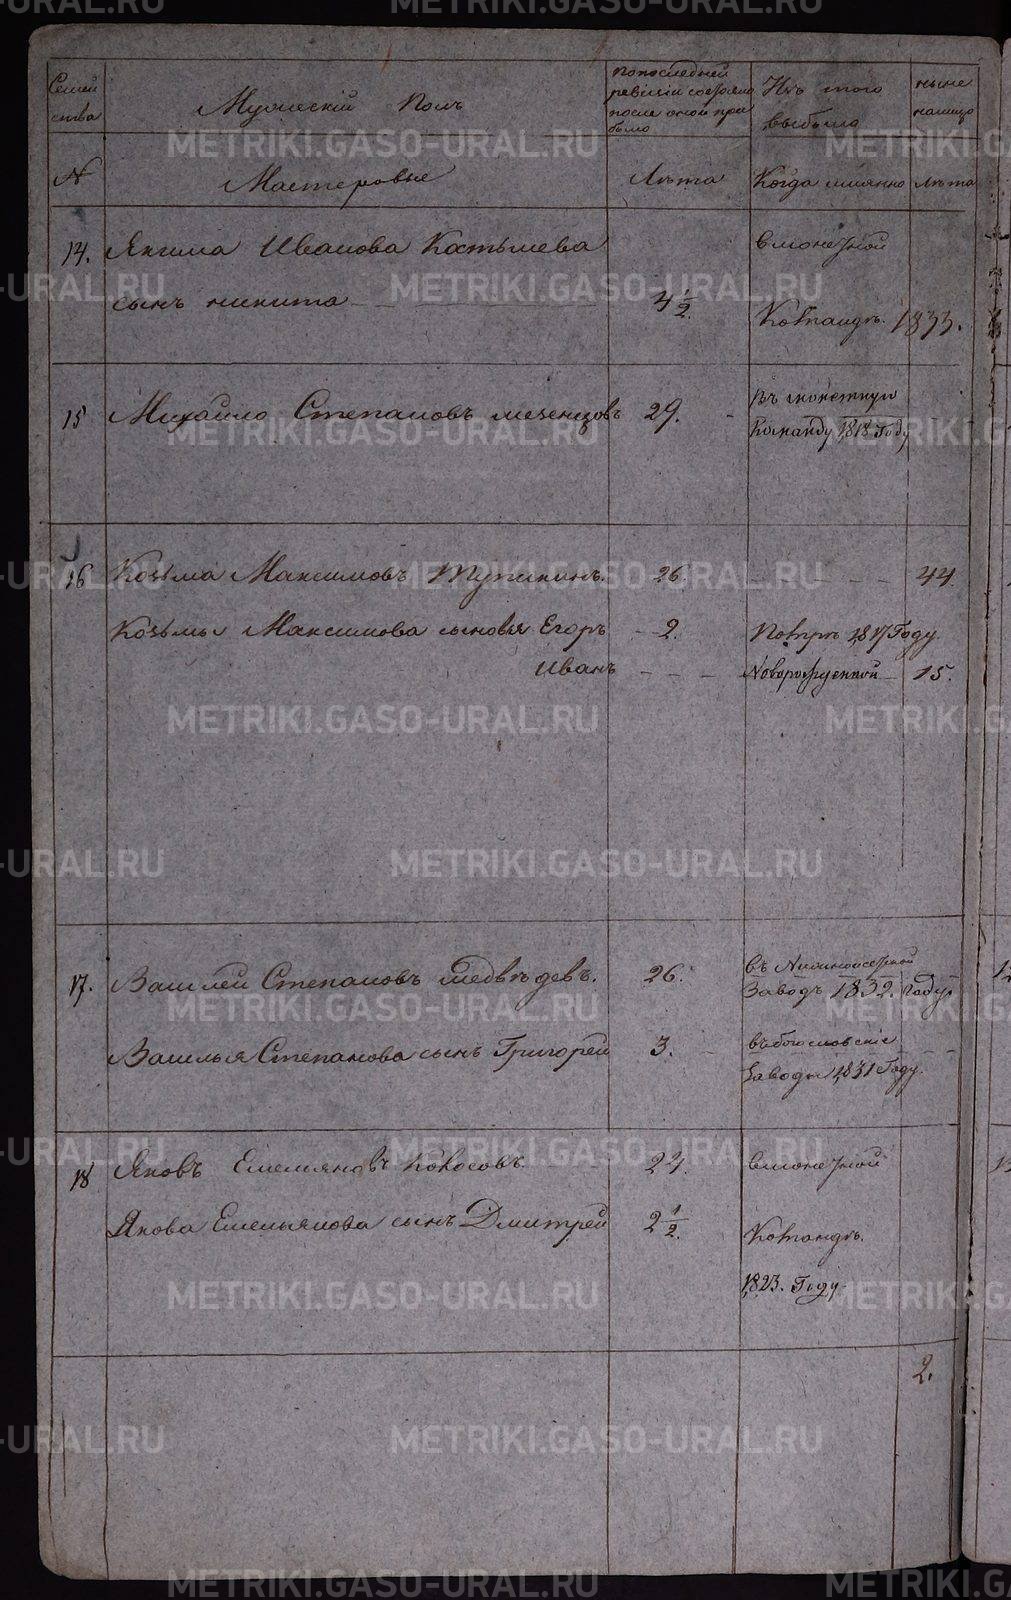 Семей
ства
Мужескій Полъ
попоследней
ревизіи состояло
после оной при
было
Изъ того
выбыло
ныне
налицо
№
Мастеровые
Лѣта
Когда имянно
лѣта
14. Якима Иванова
сынъ никита 4 1/2
вмонетной
Командѣ. 1833.
15 Михайло Степановъ мезенцовъ 29.
Въ монетную
Команду 1818 Году
16 Козьма Максимовъ Тупикинъ. 26. 44
Козьмы Максимова сыновья Егоръ 2. Помре 1817 Году
Иванъ Новорожденной 15.
17. Василей Степановъ медвѣдевъ. 26.
въ
Заводъ 1832. году
Василья Степанова сынъ Григорей 3.
въбогословскіе
Заводы 1831 Году.
18 Яковъ Емельяновъ Кокосовъ. 23.
вмонетной
Якова Емельянова сынъ Дмитрей 2 1/2.
Командѣ.
1823. Году
2.
METRIKI.GASO-URAL.RU